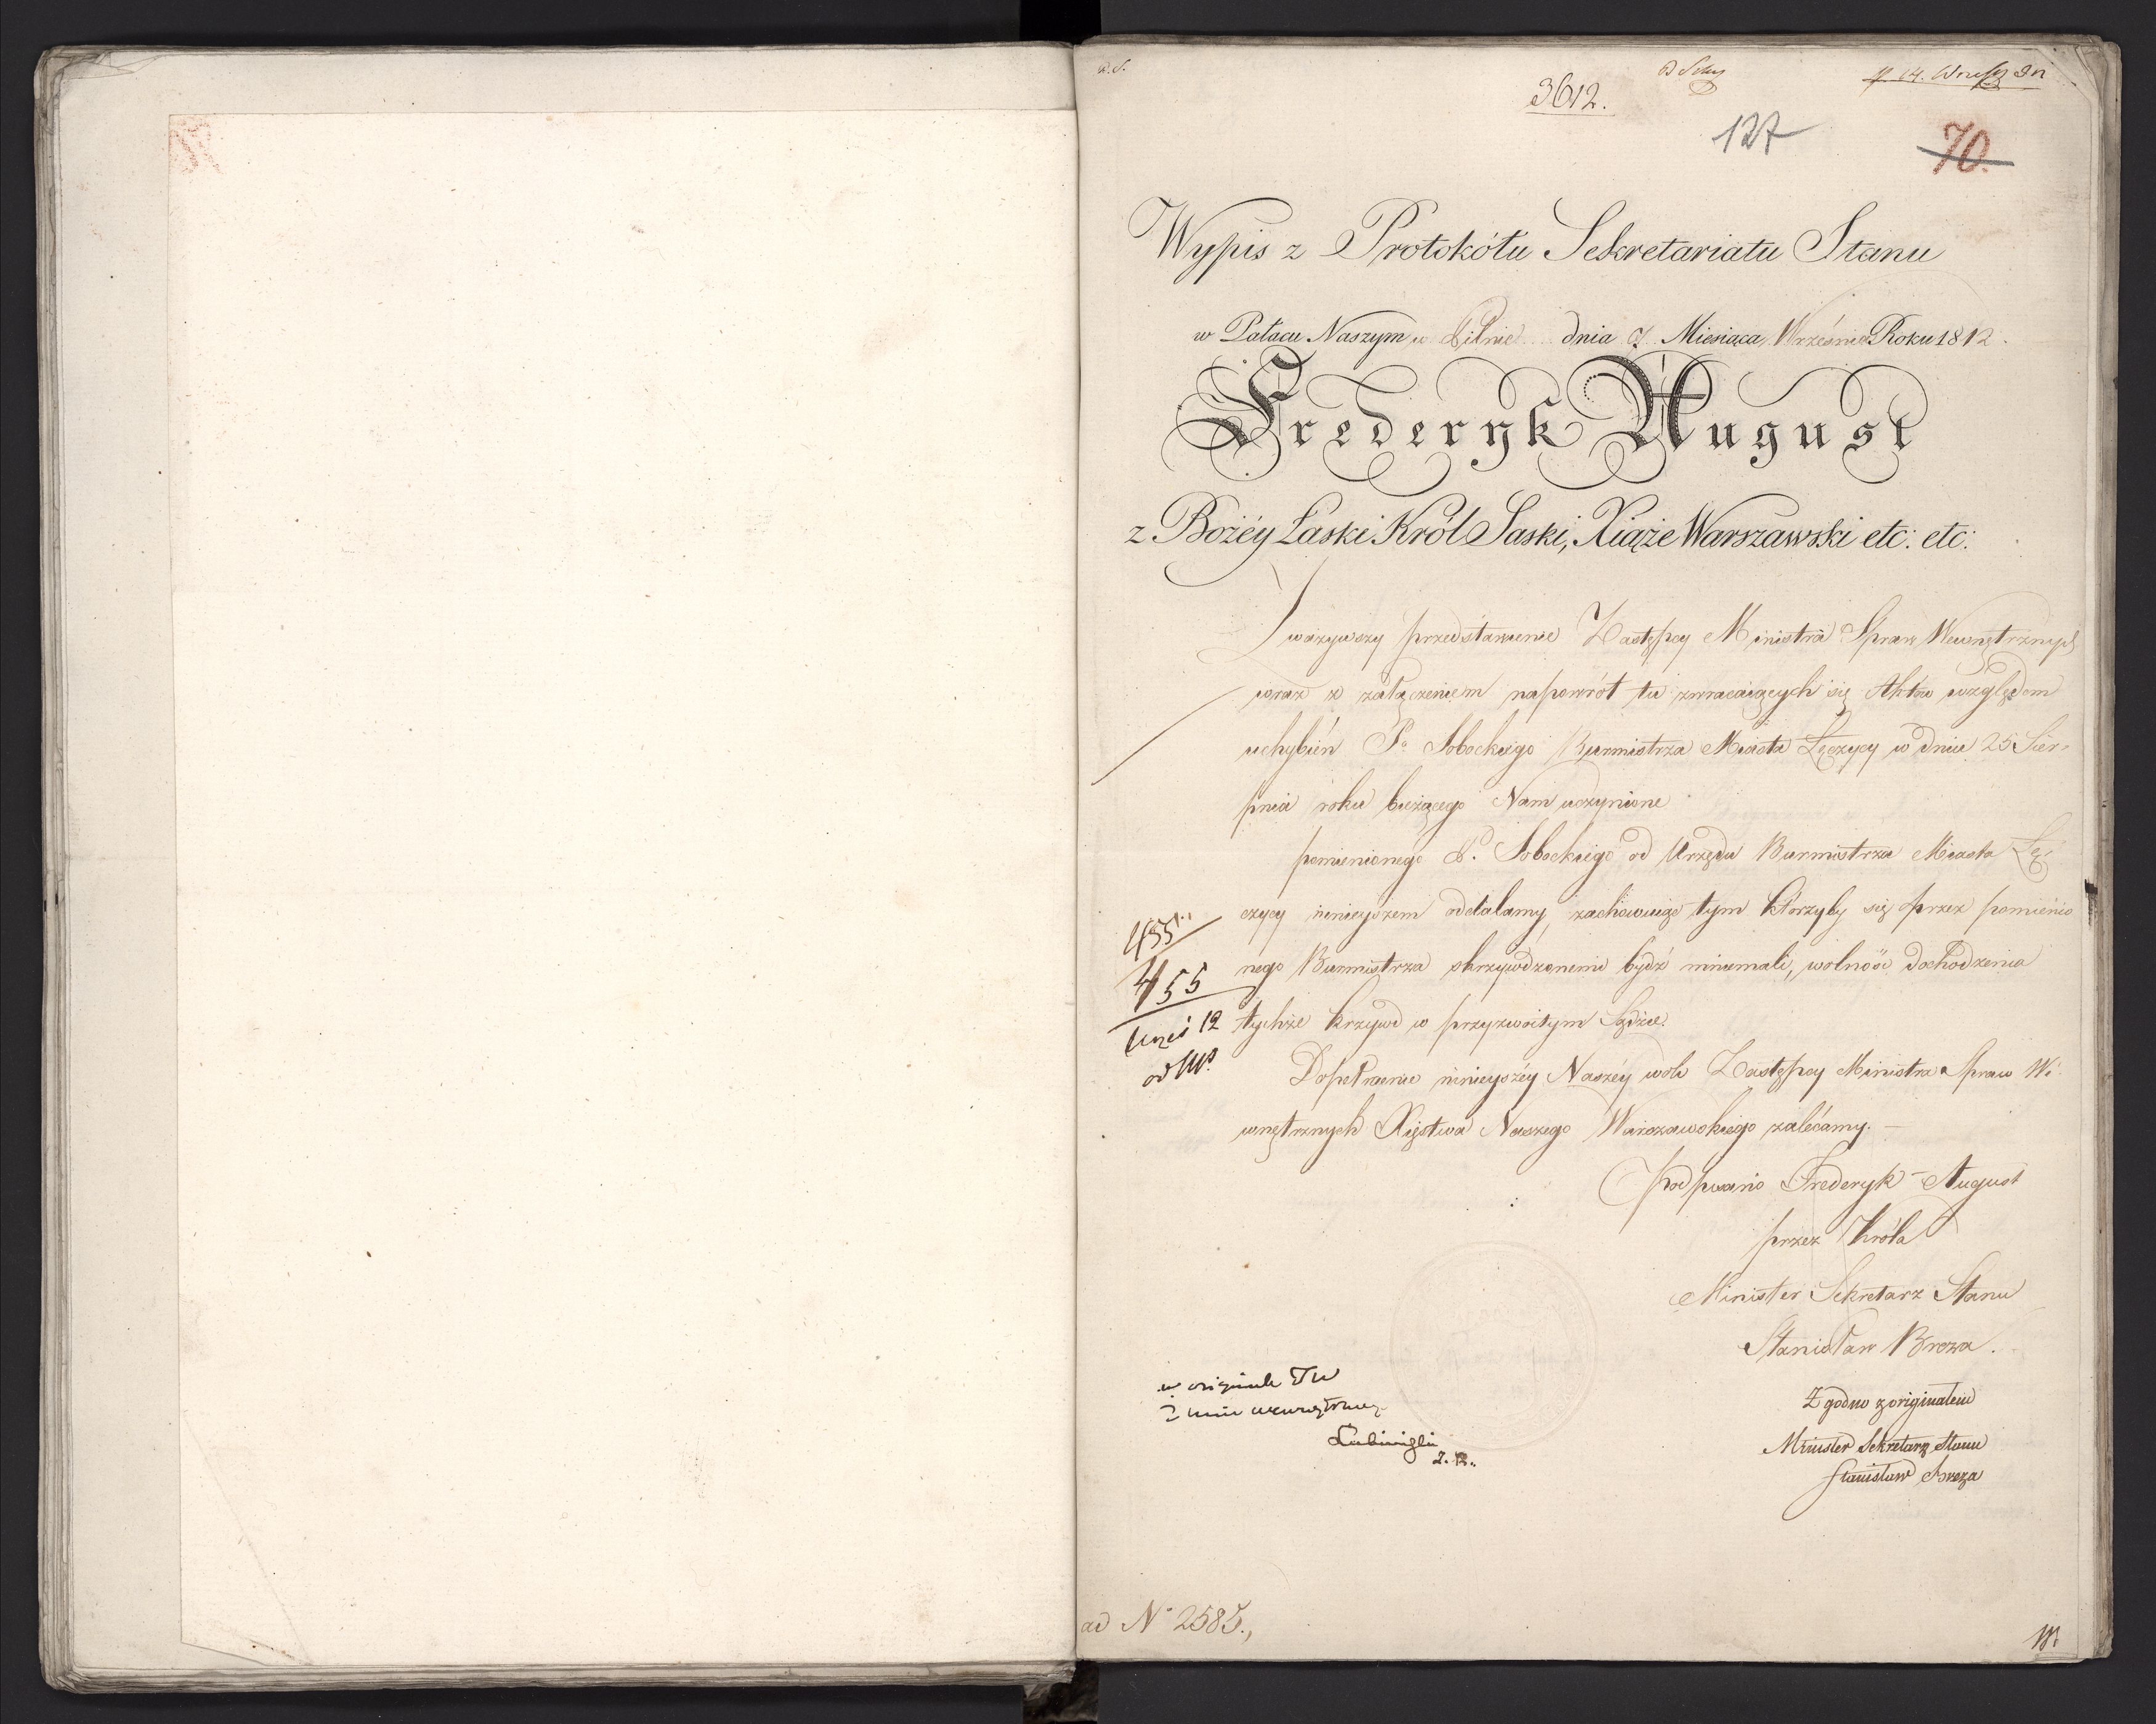 3612.
14. Wrześ 812
127
70.
Wypis z Protokółu Sekretariatu Stanu
w Pałacu Naszym w Pilnie dnia 7 Miesiąca Września Roku 1812.
Frederyk August
z Bożéy Łaski Król Saski, Xiąże Warszawski etc: etc:
Zważywszy przedstawienie Zastępcy Ministra Spraw Wewnętrznych
wraz z załączeniem napowrót tu zwracaiących się Aktów względem
uchybień Po Sobockiego Burmistrza Miasta Łęczycy w dniu 25 Sier-
pnia roku bieżącego Nam uczynione
pomienionego P. Sobockiego od Urzędu Burmistrza Miasta Łę-
czycy ninieyszem oddalamy, zachowuiąc tym którzyby się przez pomienio
nego Burmistrza skrzywdzonemi bydź mniemali, wolność dochodzenia
tychże krzywd w przyzwoitym Sądzie.
455
455
12
Dopełnienie ninieyszéy Naszéy woli Zastępcy Ministra Spraw We-
wnętrznych Xięstwa Naszego Warszawskiego zalécamy. —
Podpisano Frederyk August
przez Króla
Minister Sekretarz Stanu
Stanisław Breza.
Zgodno z originałem
Minister Sekretarz Stanu
Stanisław Breza
ad No 2585.,